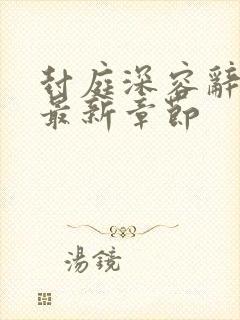 封庭深容辭
最新章節
湯鏡